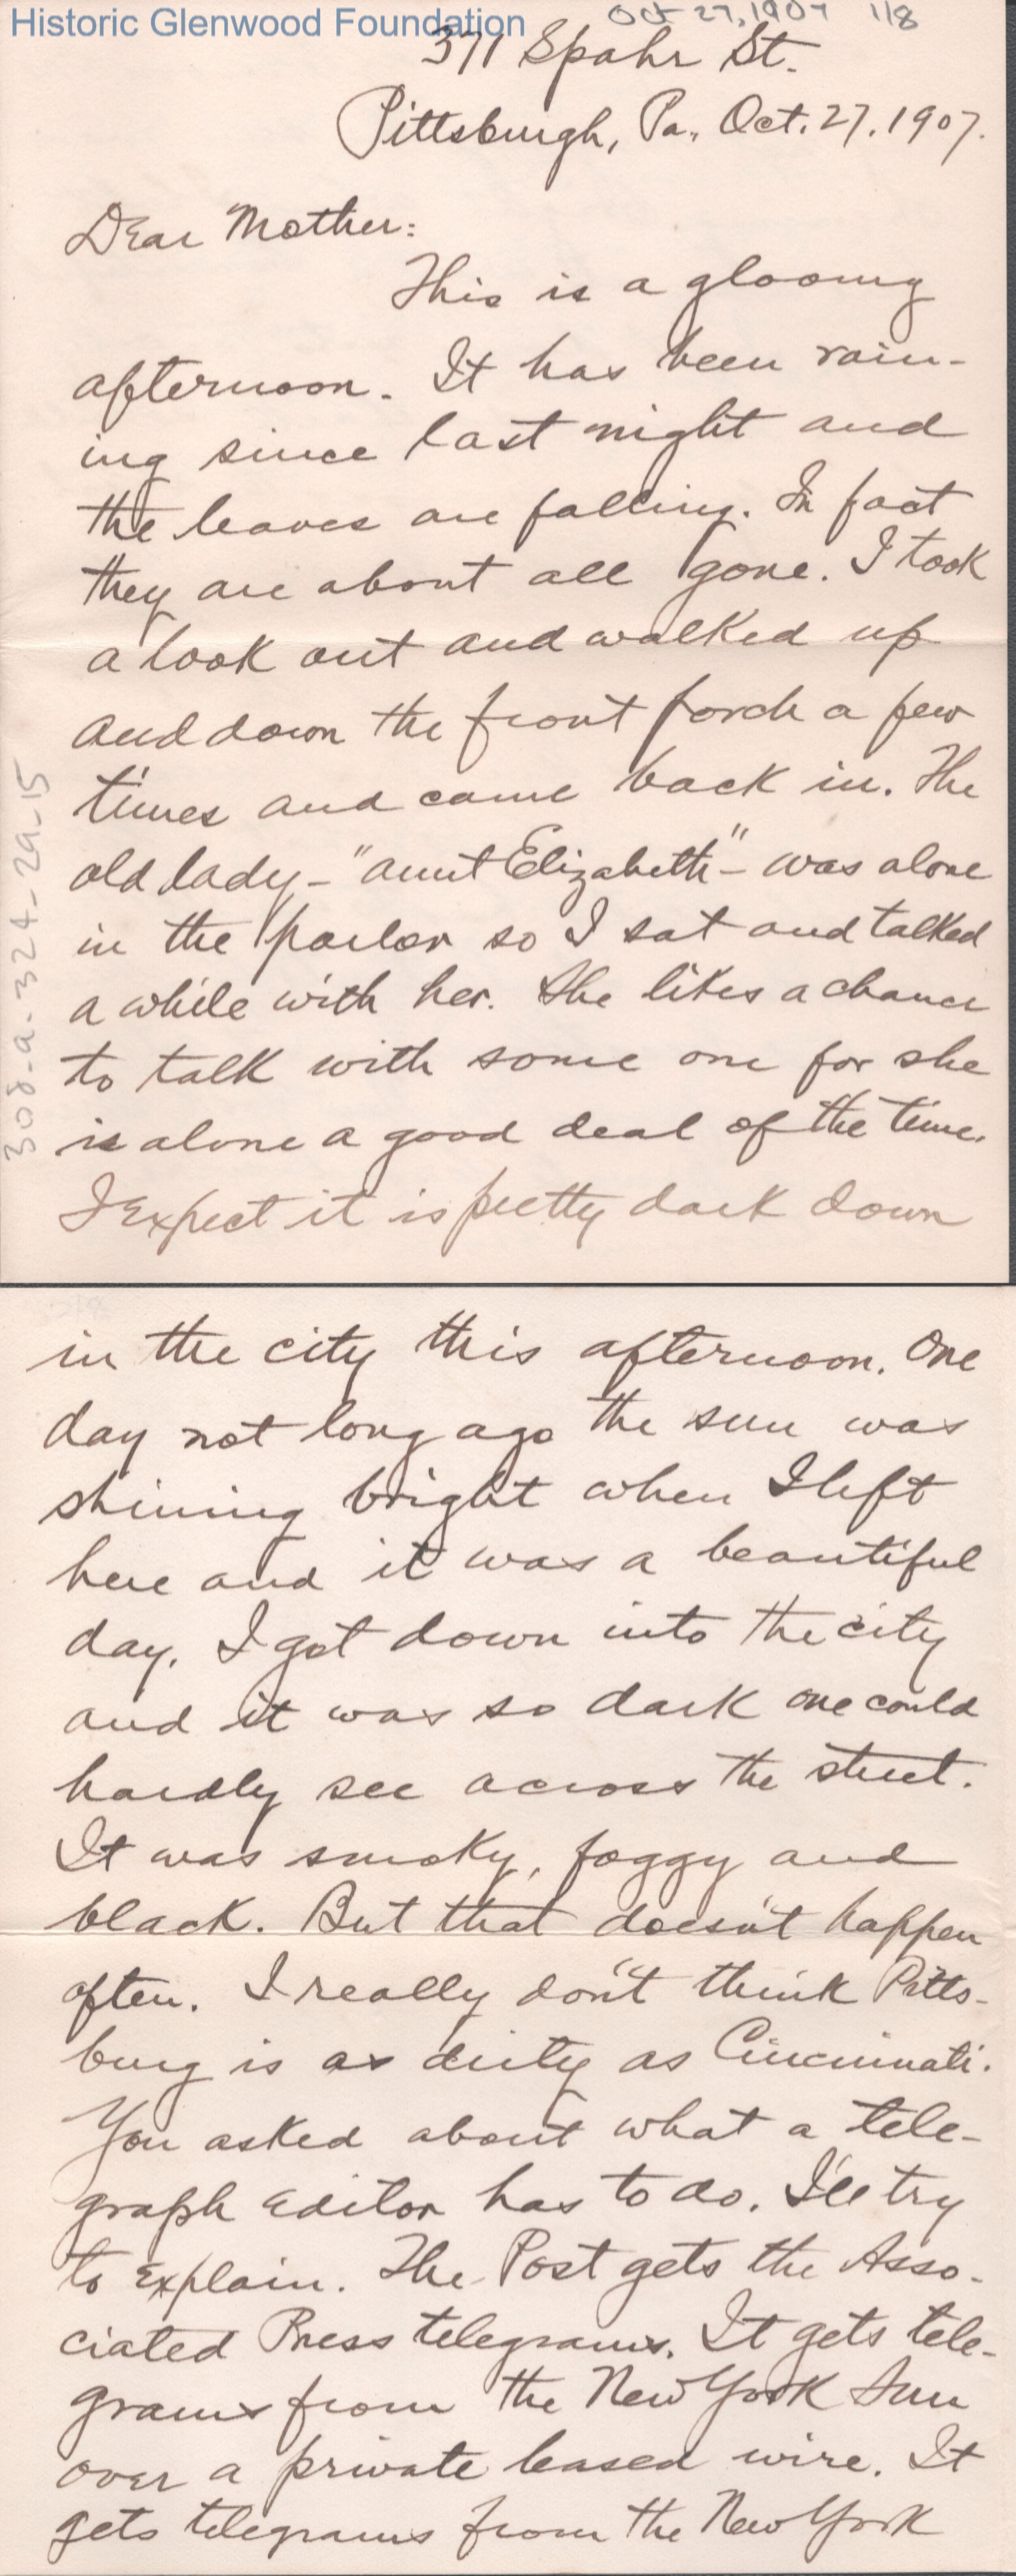 Historic Glenwood Foundation
Oct 27, 1907 118
371 Spahr St.
Pittsburgh, Pa., Oct. 27, 1907.
Dear Mother:
This is a gloomy
afternoon. It has been rain-
ing since last night and
the leaves are falling. In fact
they are about all gone. I took
a look out and walked up
and down the front porch a few
times and came back in. The
old lady - "aunt Elizabeth" - was alone
in the parlor so I sat and talked
a while with her. She likes a chance
to talk with some one for she
is alone a good deal of the time.
I expect it is pretty dark down
308-a-324-29-15
in the city this afternoon. One
day not long ago the sun was
shining bright when I left
here and it was a beautiful
day. I got down into the city
and it was so dark one could
hardly see across the street.
It was smoky, foggy and
black. But that doesn't happen
often. I really don't think Pitts-
burg is as dirty as Cincinnati.
You asked about what a tele-
graph editor has to do. I'll try
to explain. The Post gets the Asso-
ciated Press telegrams. It gets tele-
grams from the New York Sun
over a private leased wire. It
gets telegrams from the New York